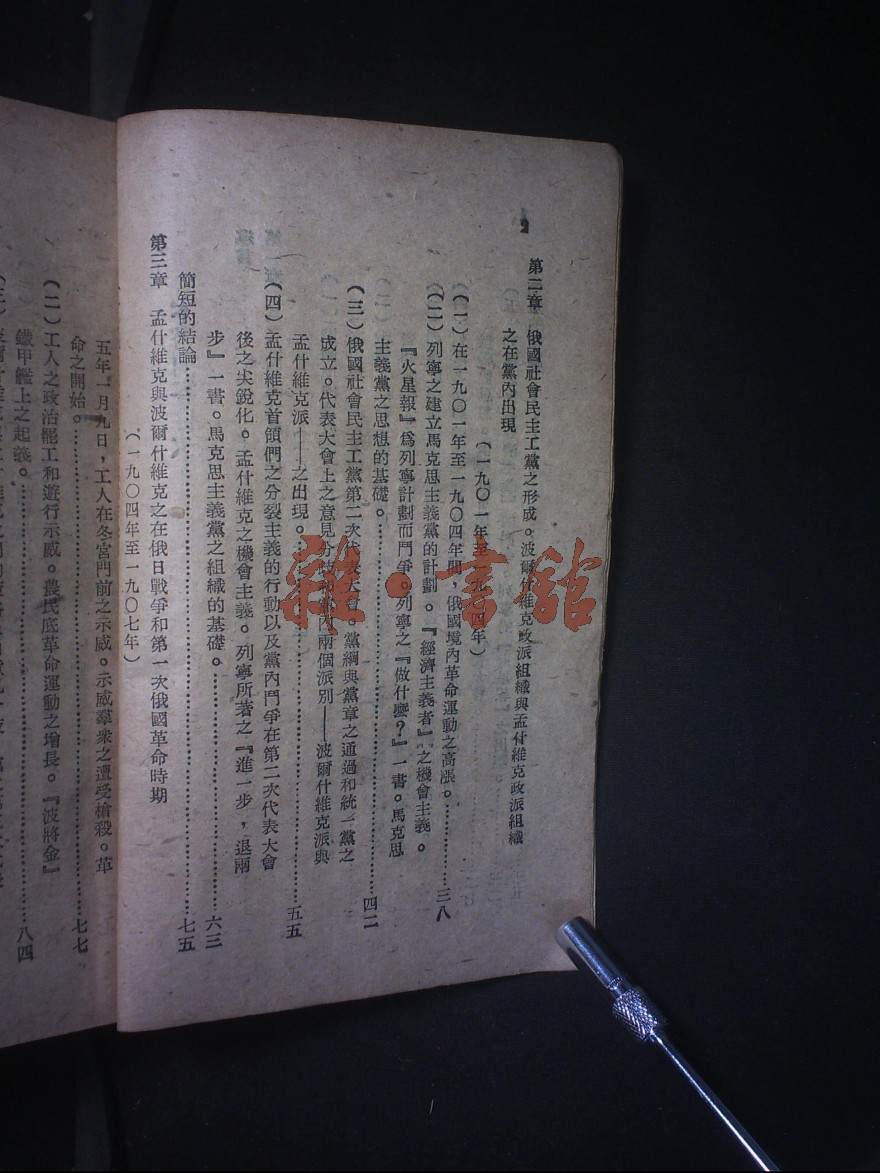 2
第二章　俄國社會民主工黨之形成。波爾什維克政派組織與孟什維克政派組織
之在黨內出現
(一九〇一年至一九〇四年)
(一)在一九〇一年至一九〇四年間，俄國境內革命運動之高漲。……三八
(二)列寧之建立馬克思主義黨的計劃。『經濟主義者』之機會主義。
『火星報』爲列寧計劃而鬥爭。列寧之『做什麼？』一書。馬克思
主義黨之思想的基礎。……四二
(三)俄國社會民主工黨第二次代表大會。黨綱與黨章之通過和統一黨之
成立。代表大會上之意見分歧和黨內兩個派別——波爾什維克派與
孟什維克派——之出現。……五五
(四)孟什維克首領們之分裂主義的行動以及黨內鬥爭在第二次代表大會
後之尖銳化。孟什維克之機會主義。列寧所著之『進一步，退兩
步』一書。馬克思主義黨之組織的基礎。……六三
簡短的結論……七五
第三章　孟什維克與波爾什維克之在俄日戰爭和第一次俄國革命時期
(一九〇四年至一九〇七年)
五年一月九日，工人在冬宮門前之示威。示威羣衆之遭受槍殺。革
命之開始。……七七
(二)工人之政治罷工和遊行示威。農民底革命運動之增長。『波將金』
鐵甲艦上之起義。……八四
雜·書館